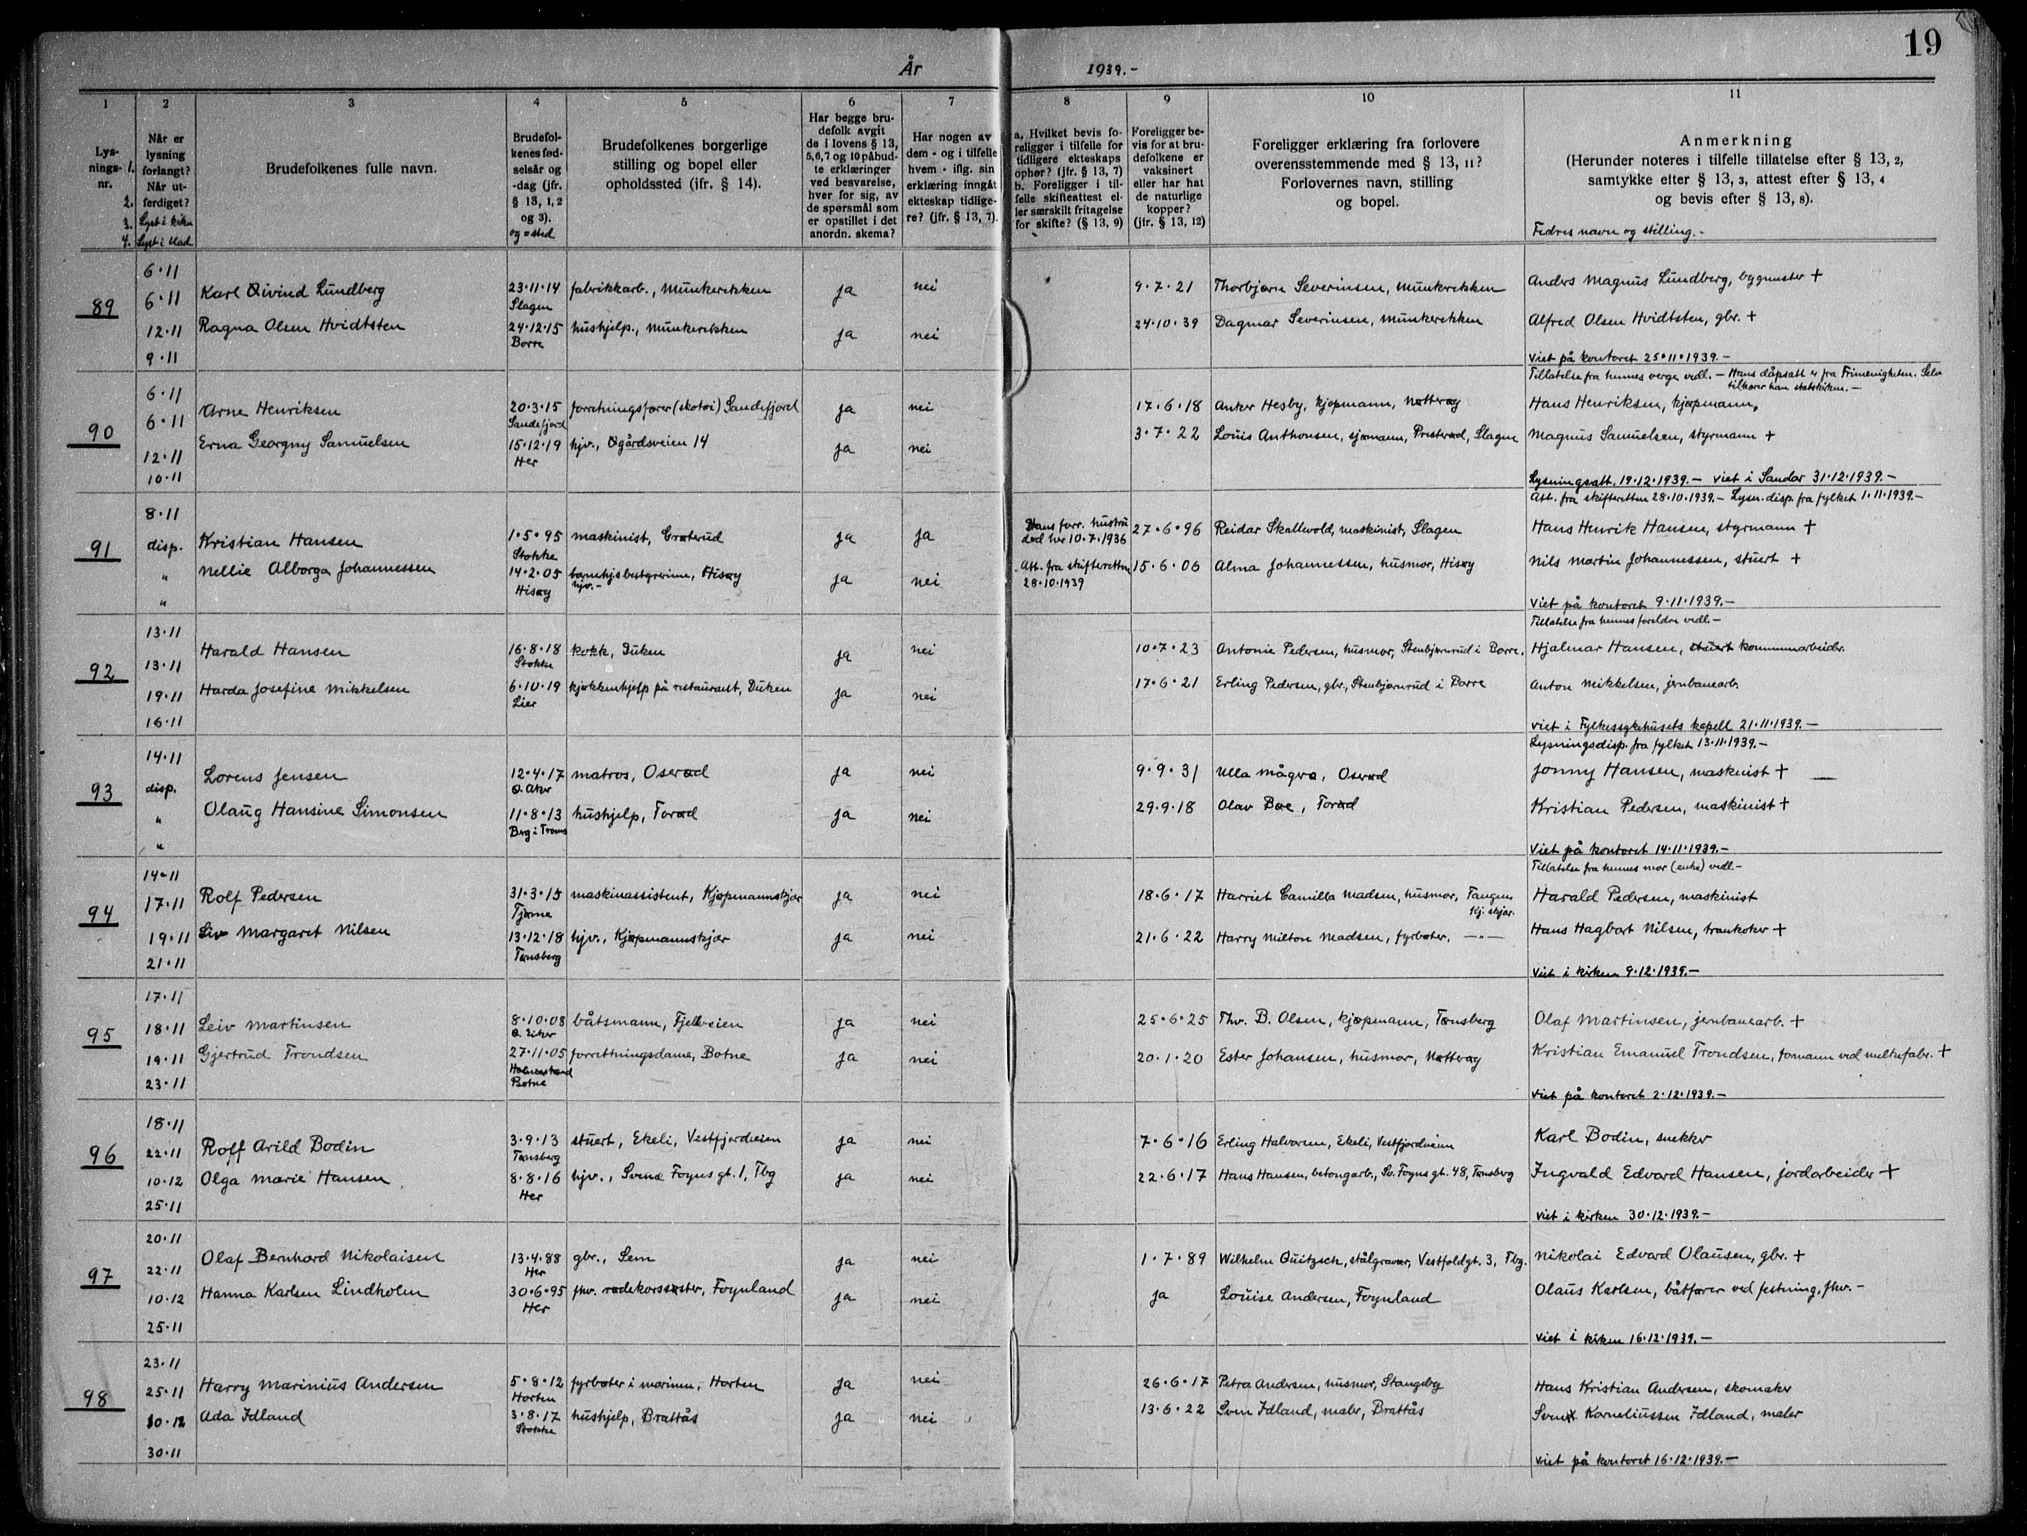 19
År 1939.-
1 2 3 4 5 6 7 8 9 10 11
Lysningsnr. 1. 2. 3. 4.
Når er lysning forlangt? Når utferdiget? Lyst i kirken Lyst i blad
Brudefolkenes fulle navn.
Brudefolkenes fødselsår og -dag (jfr. § 13, 1, 2 og 3). og -sted
Brudefolkenes borgerlige stilling og bopel eller opholdssted (jfr. § 14).
Har begge brudefolk avgit de i lovens § 13, 5, 6, 7 og 10 påbudte erklæringer ved besvarelse, hver for sig, av de spørsmål som er opstillet i det anordn. skema?
Har nogen av dem - og i tilfelle hvem - iflg. sin erklæring inngåt ekteskap tidligere? (jfr. § 13, 7).
a. Hvilket bevis foreligger i tilfelle for tidligere ekteskaps ophør? (jfr. § 13, 7) b. Foreligger i tilfelle skifteattest eller særskilt fritagelse for skifte? (§ 13, 9)
Foreligger bevis for at brudefolkene er vaksinert eller har hat de naturlige kopper? (jfr. § 13, 12)
Foreligger erklæring fra forlovere overensstemmende med § 13, 11? Forlovernes navn, stilling og bopel.
Anmerkning (Herunder noteres i tilfelle tillatelse efter § 13, 2, samtykke efter § 13, 3, attest efter § 13, 4 og bevis efter § 13, 8). Fedres navn og stilling.-
89
6.11
6.11 Karl Øivind Lundberg 23.11.14 Slagen fabrikkarb., Munkerekken ja nei 9.7.21 Thorbjørn Severinsen, Munkerekken Anders Magnus Lundberg, bygmester +
12.11 Ragna Olsen Hvidtsten 24.12.15 Borre hushjelp., Munkerekken ja nei 24.10.39 Dagmar Severinsen, Munkerekken Alfred Olsen Hvidtsten, gbr. +
9.11 Viet på kontoret 25.11.1939.-
90
6.11 Tillatelse fra hennes verge vedl. - Hans dåpsatt er fra Frimenigheten. Selv tilhører han statskirken.-
6.11 Arne Henriksen 20.3.15 Sandefjord forretningsfører (skotøi) Sandefjord ja nei 17.6.18 Anker Hesby, kjøpmann, Nøtterøy Hans Henriksen, kjøpmann,
12.11 Erna Georgny Samuelsen 15.12.19 Her hjv., Øgårdsveien 14 ja nei 3.7.22 Louis Anthonsen, sjømann, Presterød, Slagen Magnus Samuelsen, styrmann +
10.11 Lysningsatt. 19.12.1939.- viet i Sandar 31.12.1939.-
91
8.11 Att. fra skifteretten 28.10.1939.- Lysn.disp. fra fylket 1.11.1939.-
disp. Kristian Hansen 1.5.95 Stokke maskinist, Grøterud ja ja Hans forr. hustru død her 10.7.1936 27.6.96 Reidar Skallevold, maskinist, Slagen Hans Henrik Hansen, styrmann +
" Nellie Alborga Johannessen 14.2.05 Hisøy barnehjsbestyrerinne, Hisøy hjv.- ja nei Att. fra skifteretten 28.10.1939 15.6.06 Alma Johannessen, husmor, Hisøy Nils Martin Johannessen, stuert +
" Viet på kontoret 9.11.1939.-
92
13.11 Tillatelse fra hennes foreldre vedl.-
13.11 Harald Hansen 16.8.18 Stokke kokk, Duken ja nei 10.7.23 Antonie Pedersen, husmor, Stenbjørnrud i Borre. Hjalmar Hansen, stuert kommunearbeider.
19.11 Harda Josefine Mikkelsen 6.10.19 Lier kjøkkenhjelp på restaurant, Duken ja nei 17.6.21 Erling Pedersen, gbr., Stenbjørnrud i Borre Anton Mikkelsen, jernbanearb.
16.11 viet i Fylkessykehusets kapell 21.11.1939.-
93
14.11 Lysningsdisp. fra fylket 13.11.1939.-
disp. Lorens Jensen 12.4.17 Ø. Aker matros, Oserød ja nei 9.9.31 Ulla Mågrø, Oserød Jonny Hansen, maskinist + —
" Olaug Hansine Simonsen 11.8.13 Berg i Troms hushjelp, Torød ja nei 29.9.18 Olav Bøe, Torød Kristian Pedersen, maskinist +
" Viet på kontoret 14.11.1939.-
94
14.11 Tillatelse fra hennes mor (enke) vedl.-
17.11 Rolf Pedersen 31.3.15 Tjøme maskinassistent, Kjøpmannskjær ja nei 18.6.17 Harriet Camilla Madsen, husmor, Tangen Kj.skjær. Harald Pedersen, maskinist
19.11 Liv Margaret Nilsen 13.12.18 Tønsberg hjv., Kjøpmannskjær ja nei 21.6.22 Harry Milton Madsen, fyrbøter, —"— Hans Hagbart Nilsen, trankoker +
21.11 Viet i kirken 9.12.1939.-
95
17.11
18.11 Leiv Martinsen 8.10.08 Ø. Eiker båtsmann, Fjellveien ja nei 25.6.25 Thv. B. Olsen, kjøpmann, Tønsberg Olaf Martinsen, jernbanearb. +
19.11 Gjertrud Trondsen 27.11.05 Holmestrand Botne forretningsdame, Botne ja nei 20.1.20 Ester Johansen, husmor, Nøtterøy Kristian Emanuel Trondsen, formann ved melkefabr. +
23.11 viet på kontoret 2.12.1939.-
96
18.11
22.11 Rolf Arild Bodin 3.9.13 Tønsberg stuert, Ekeli, Vestfjordveien ja nei 7.6.16 Erling Halvorsen, Ekeli, Vestfjordveien Karl Bodin, snekker
10.12 Olga Marie Hansen 8.8.16 Her hjv., Svend Foyns gt. 1, Tbg ja nei 22.6.17 Hans Hansen, betongarb., Sv. Foyns gt. 48, Tønsberg Ingvald Edvard Hansen, jordarbeider +
25.11 viet i kirken 30.12.1939.-
97
20.11
22.11 Olaf Bernhard Nikolaisen 13.4.88 Her gbr., Sem ja nei 1.7.89 Wilhelm Quitzsch, stålgravør, Vestfoldgt. 3, Tbg. Nikolai Edvard Olausen, gbr. +
10.12 Hanna Karlsen Lindholm 30.6.95 Her fhv. rødekorssøster, Foynland ja nei ja Louise Andersen, Foynland Olaus Karlsen, båtfører ved festning, fhv. -
25.11 viet i kirken 16.12.1939.-
98
23.11
25.11 Harry Marinius Andersen 5.8.12 Horten fyrbøter i marinen, Horten ja nei 26.6.17 Petra Andersen, husmor, Stangeby Hans Kristian Andersen, skomaker
10.12 Ada Idland 3.8.17 Stokke hushjelp, Brattås ja nei 13.6.22 Sven Idland, maler, Brattås Sven Korneliussen Idland, maler
30.11 viet på kontoret 16.12.1939.-